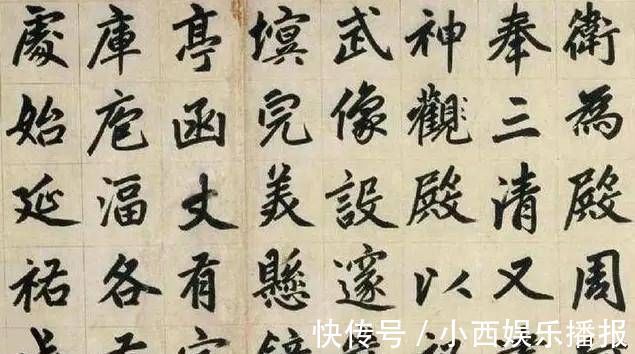 衛為殿周
奉三清又
神觀殿以
武像設邃
塓完美懸
亭函丈有
庫庖湢各
處始延祐
快传号 / 小西娱乐播报